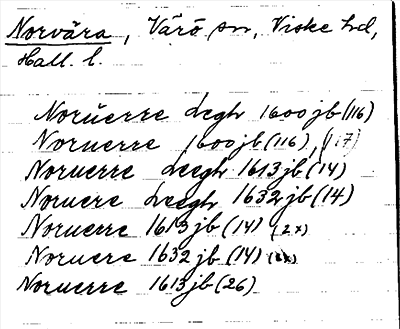 Norvära, Värö sn, Viske hd,
Hall. l.
Norŭerre degh 1600 jb (116)
Noruerre 1600 jb (116), (117)
Noruerre deegh 1613 jb (14)
Noruere deegh 1632 jb (14)
Noruerre 1613 jb (14) (2x)
Noruere 1632 jb (14)
Noruerre 1613 jb (26)